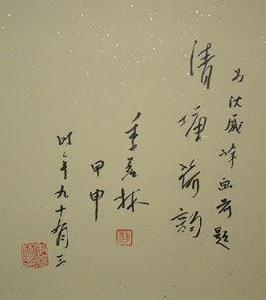 为沈威峰画荷题
清塘荷韵
季羡林
甲申
时年九十有三